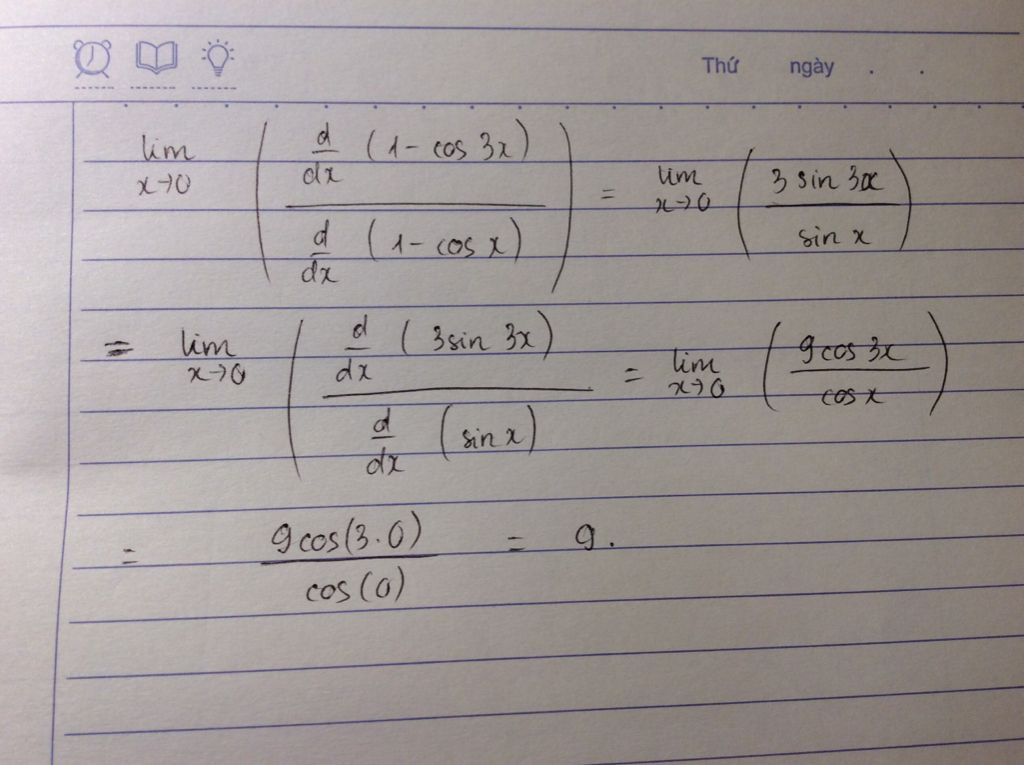 Thứ ngày . .
lim x→0 ( d/dx (1 - cos 3x) / d/dx (1 - cos x) ) = lim x→0 ( 3 sin 3x / sin x )
= lim x→0 ( d/dx ( 3sin 3x ) / d/dx ( sin x ) = lim x→0 ( 9 cos 3x / cos x )
= 9cos(3.0) / cos(0) = 9.